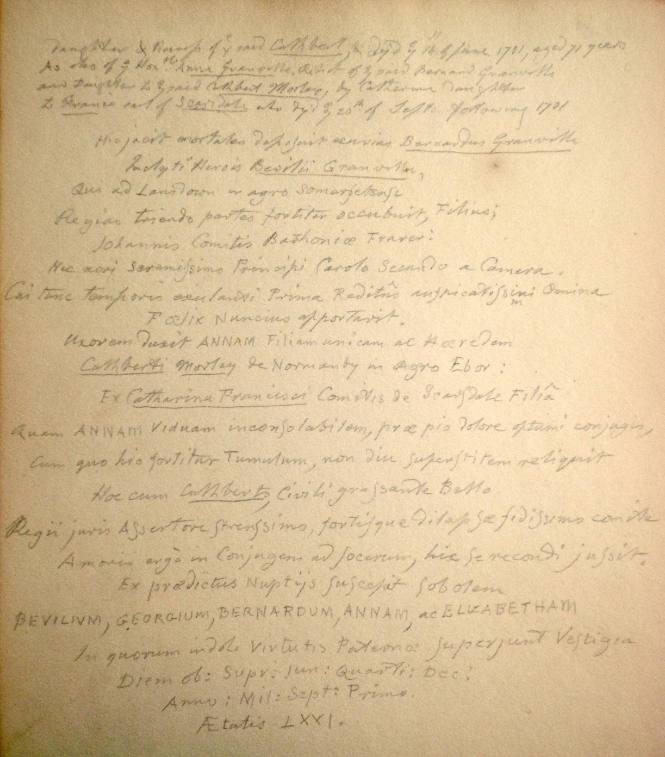 daughter & Heiress of yͤ said Cuthbert, & dyd yͤ 14 of June 1701, aged 71 years
As also of yͤ Honᵇˡᵉ Anne Granville, Relict of yͤ said Bernard Granville
and Daughter to yͤ said Cuthbert Morley, by Catherine Daughter
to Francis earl of Scarsdale who dyd yͤ 20ᵗʰ of Septr following 1701
Hic jacit mortales deposuit exuvias Bernardus Granville
Inclyti Herois Bevilii Granville,
Qui ad Lansdown in agro Somersetense
Regias tuendo partes fortiter occubuit, Filius;
Johannis Comitis Bathoniæ Frater:
Nec non Serenissimo Principi Carolo Secundo a Camera.
Cui tunc temporis exulanti Prima Reditûs auspicatissimi Omina
Fœlix Nuncius apportavit.
Uxorem duxit ANNAM Filiam unicam ac Hæredem
Cuthberti Morley de Normanby in Agro Ebor:
Ex Catharina Francisci Comitis de Scarsdale Filiâ
Quam ANNAM Viduam inconsolabilem, præ pio dolore optimi conjugis,
Cum quo hic sortitur Tumulum, non diu superstitem reliquit
Hoc cum Cuthberto, Civili grassante Bello
Regii juris Assertore strenssimo, fortisque dilapsæ fidissimo comite
Amoris ergà in Conjugem ad socerum, hic se recondi jussit.
Ex prædictus Nuptijs suscepit sobolem
BEVILIVM, GEORGIUM, BERNARDUM, ANNAM, ac ELIZABETHAM
In quorum indole Virtutis Paternæ supersunt Vestigia
Diem ob: Supr: Jun: Quarti: Dec:
Anno: Mil: Sept: Primo.
Ætatis LXXI.